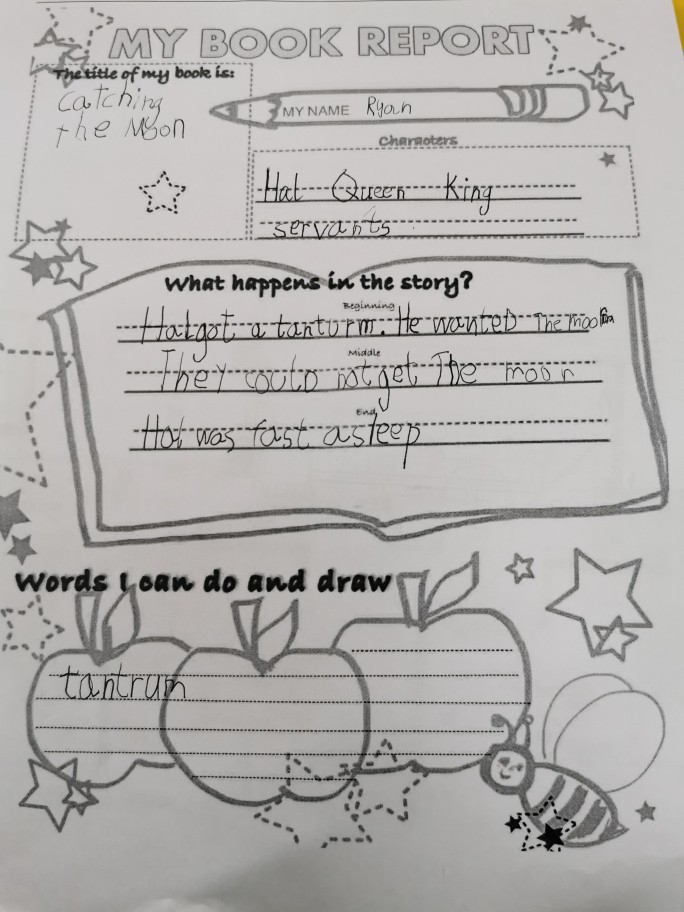 MY BOOK REPORT
The title of my book is:
Catching
the Moon
MY NAME Ryan
Characters
Hal Queen King
servants
What happens in the story?
Beginning
Hal got a tanturm. He wanted The moon
Middle
They could not get The moon
End
Hal was fast asleep
Words I can do and draw
tantrum